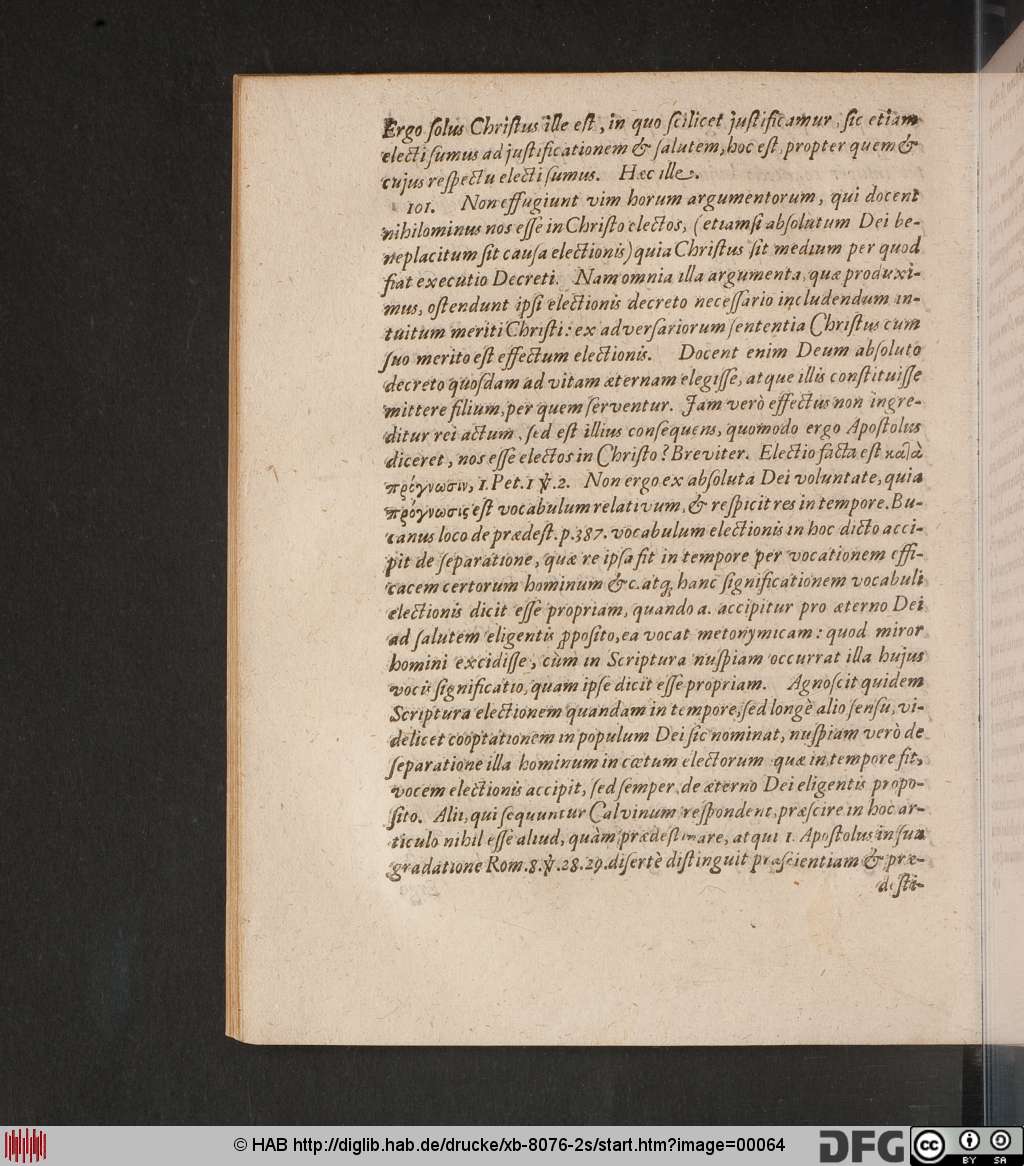 Ergo solus Christus ille est, in quo scilicet justificamur, sic etiam
electi sumus ad justificationem & salutem, hoc est, propter quem &
cujus respectu electi sumus. Hæc ille.
101. Non effugiunt vim horum argumentorum, qui docent
nihilominus nos esse in Christo electos, (etiamsi absolutum Dei be-
neplacitum sit causa electionis) quia Christus sit medium per quod
fiat executio Decreti. Nam omnia illa argumenta, quæ produxi-
mus, ostendunt ipsi electionis decreto necessario includendum in-
tuitum meriti Christi: ex adversariorum sententia Christus cum
suo merito est effectum electionis. Docent enim Deum absoluto
decreto quosdam ad vitam æternam elegisse, atque illis constituisse
mittere filium, per quem serventur. Jam verò effectus non ingre-
ditur rei actum, sed est illius consequens, quomodo ergo Apostolus
diceret, nos esse electos in Christo? Breviter. Electio facta est καὶὰ
πρόγνωσιν, 1. Pet. 1 ℣. 2. Non ergo ex absoluta Dei voluntate, quia
πρόγνωσις est vocabulum relativum, & respicit res in tempore. Bu-
canus loco de prædest. p. 387. vocabulum electionis in hoc dicto acci-
pit de separatione, quæ re ipsa fit in tempore per vocationem effi-
cacem certorum hominum &c. atq; hanc significationem vocabuli
electionis dicit esse propriam, quando a. accipitur pro æterno Dei
ad salutem eligentis ꝓposito, ea vocat metonymicam: quod miror
homini excidisse, cùm in Scriptura nuspiam occurrat illa hujus
vocis significatio, quam ipse dicit esse propriam. Agnoscit quidem
Scriptura electionem quandam in tempore, sed longè alio sensu, vi-
delicet cooptationem in populum Dei sic nominat, nuspiam verò de
separatione illa hominum in cœtum electorum quæ in tempore fit,
vocem electionis accipit, sed semper de æterno Dei eligentis propo-
sito. Alii, qui sequuntur Calvinum respondent, præscire in hoc ar-
ticulo nihil esse aliud, quàm prædestinare, atqui 1. Apostolus in sua
gradatione Rom. 8. ℣. 28. 29. disertè distinguit præscientiam & præ-
desti-
© HAB http://diglib.hab.de/drucke/xb-8076-2s/start.htm?image=00064
DFG
cc BY SA